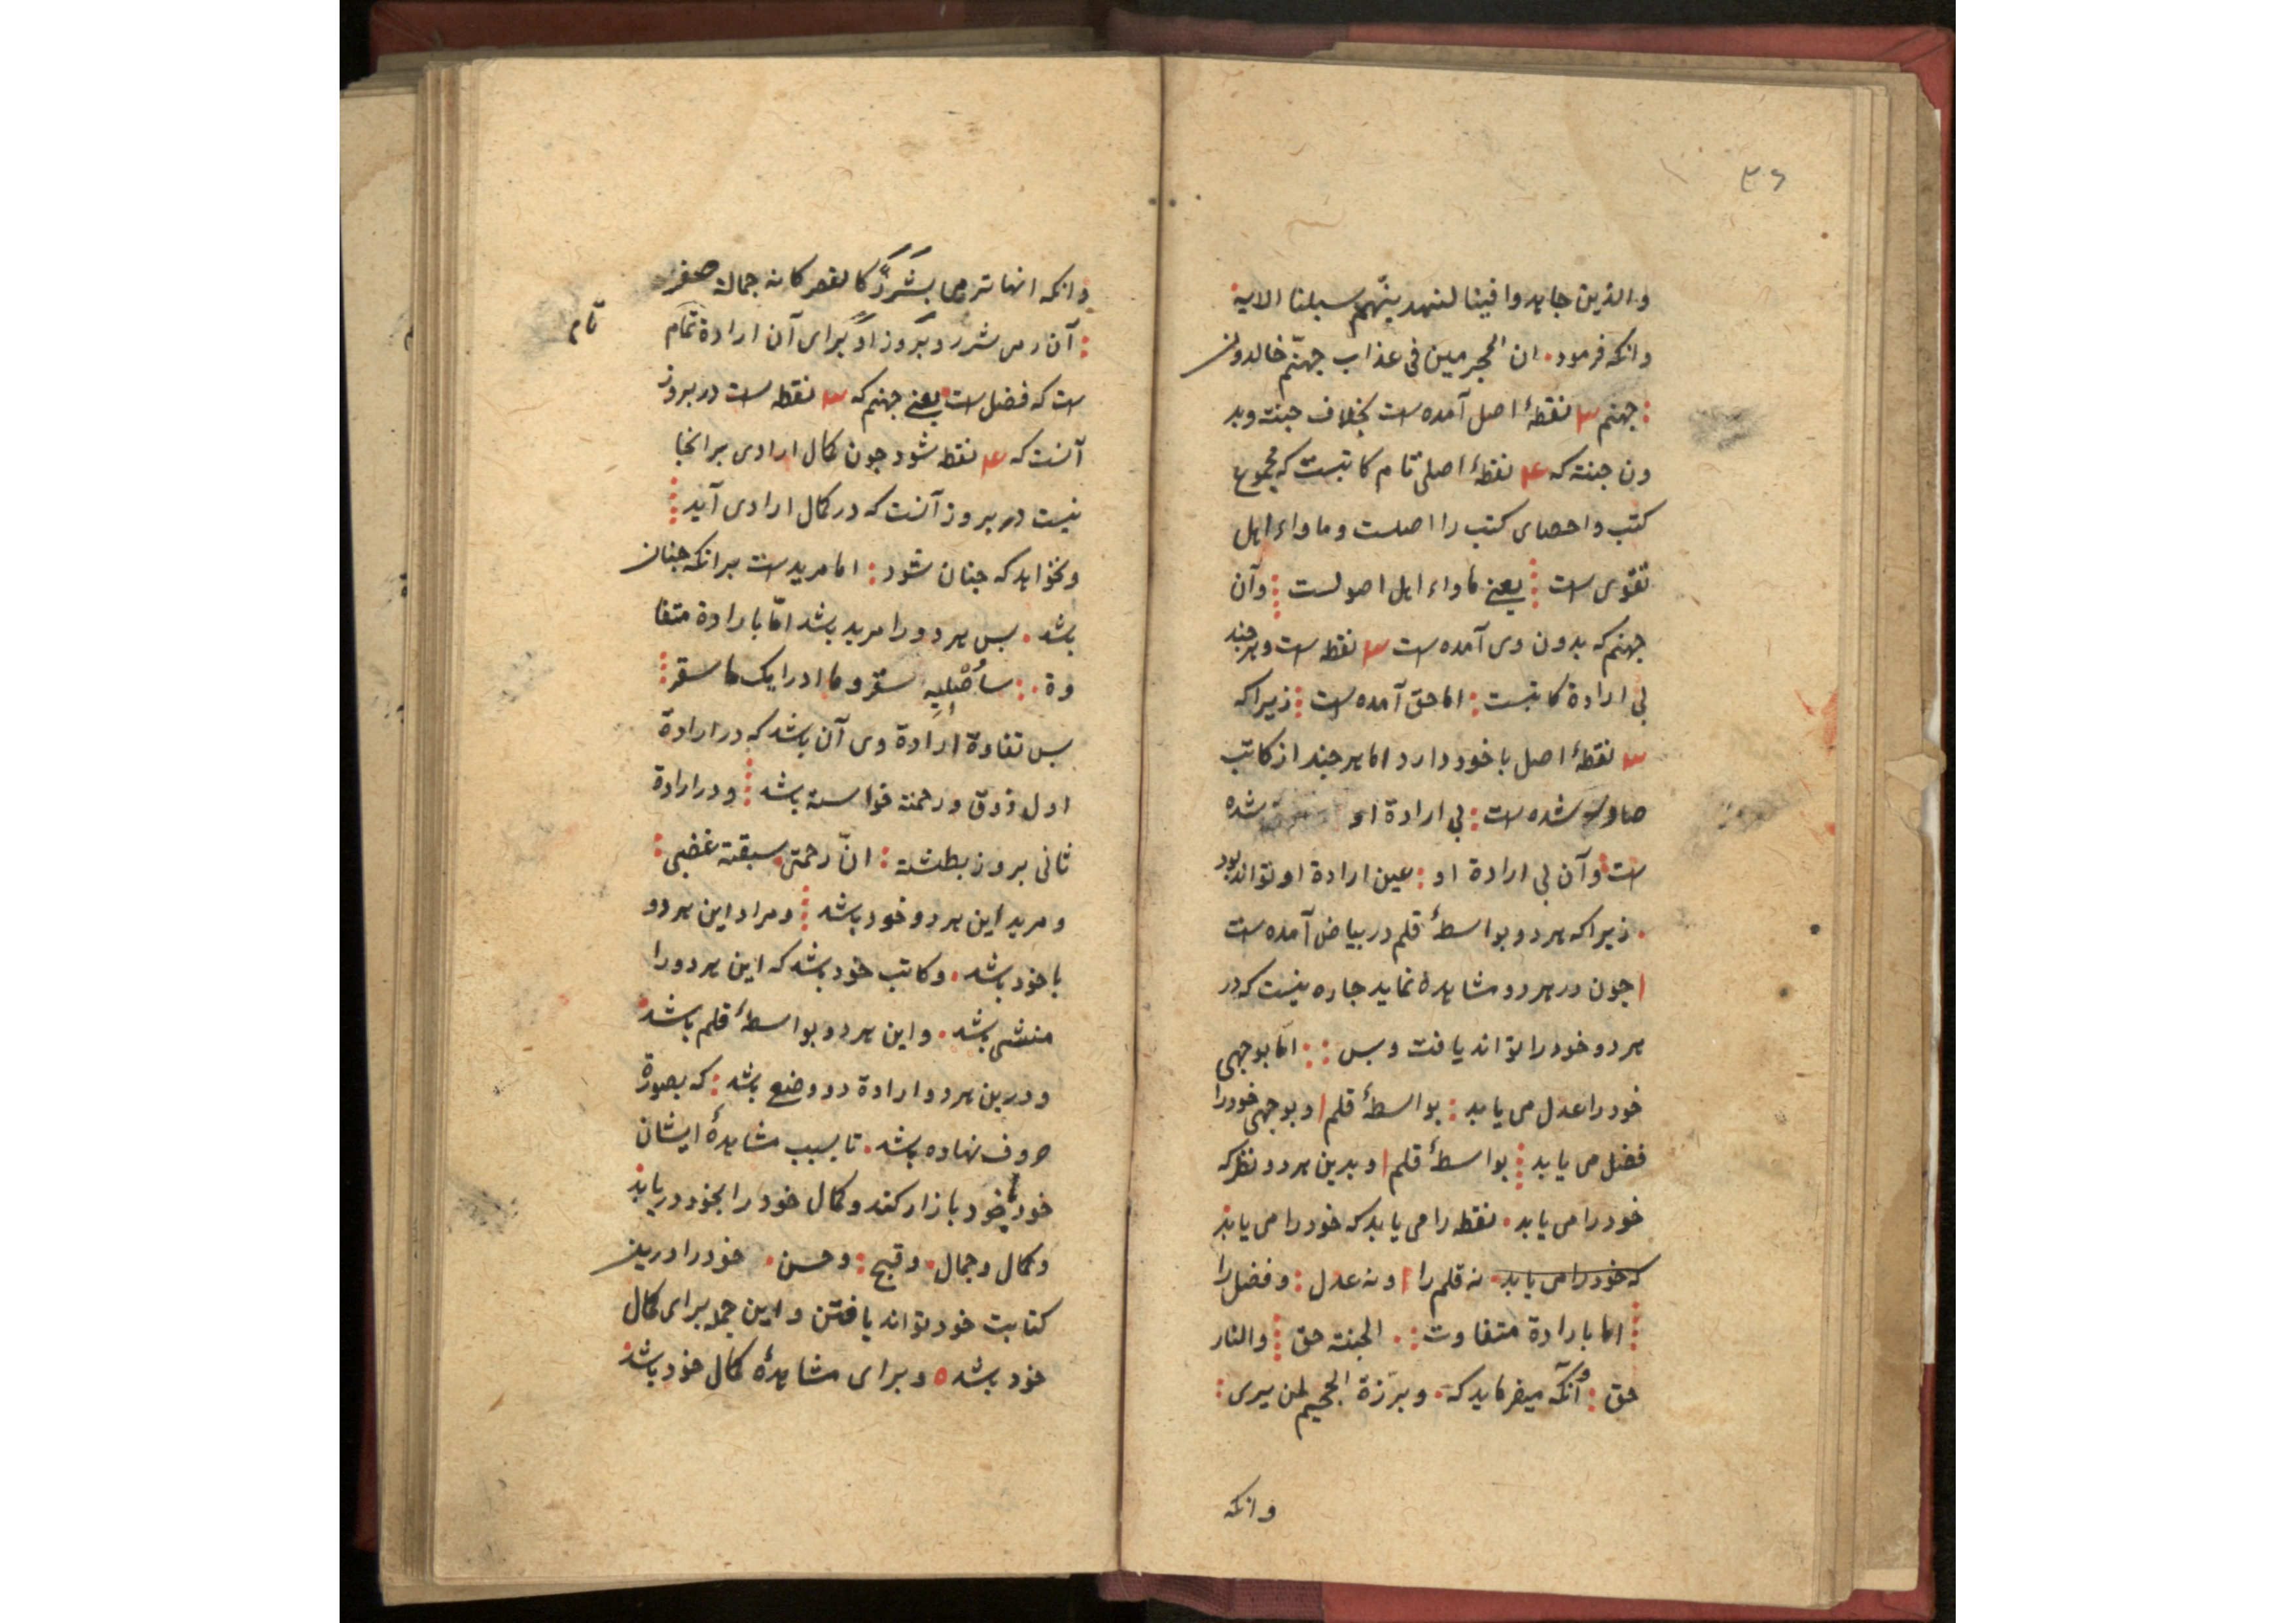 ۳۶
والذین جاهدوا فینا لنهدینّهم سبلنا الایه
وانکه فرمود ان المجرمین فی عذاب جهنّم خالدون
جهنم ۳ نقطهٔ اصل آمده است بخلاف جنت وبد
ون جنته که ۴ نقطهٔ اصلی تام کاتبست که مجموع
کتب واحصای کتب را اصلست وماواء اهل
تقوی است یعنی ماواء اهل اصولست وآن
جهنم که بدون وی آمده است ۳ نقطه است وهرچند
بی ارادة کاتبست اما حق آمده است زیراکه
۳ نقطهٔ اصل باخود دارد اما هرچند از کاتب
صادر شده است بی ارادة او شده
است وآن بی ارادة او عین ارادة او تواند بود
زیراکه هردو بواسطهٔ قلم در بیاض آمده است
جون در هردو مشاهدهٔ نماید جاره نیست که در
هردو خود را تواند یافت وبس امّا بوجهی
خود را عدل می یابد بواسطهٔ قلم وبوجهی خودرا
فضل می یابد بواسطهٔ قلم وبدین هردو نظر که
خود را می یابد نقطه را می یابد که خود را می یابد
که خود را می یابد نه قلم را ونه عدل وفضل را
اما بارادة متفاوت الجنته حق والنار
حق وآنکه میفرماید که وبرّزة الجحیم لمن یری
وانکه
وانکه انها ترمی بشررٍ کالقصر کانه جمالة صفر
آن رمی شرر وبروز او برای آن ارادة تمام
تام
است که فضل است یعنی جهنم که ۳ نقطه است در بروز
آنست که ۴ نقطه شود جون کمال ارادی بر انجا
نیست در بروز آنست که در کمال ارادی آید
ونخواهد که جنان شود اما مرید است برانکه جنان
باشد بس هردو را مرید باشد امّا بارادة متفا
وة سأُصْلِیهِ سقر وما ادرایک ما سقر
بس تفاوة ارادة وی آن باشد که در ارادة
اول ذوق ورحمته خواسته باشد ودر ارادة
ثانی بروز بطشته انّ رحمتی سبقته غضبی
ومرید این هردو خود باشد ومراد این هردو
باخود باشد وکاتب خود باشد که این هردو را
منشی باشد واین هردو بواسطهٔ قلم باشد
ودرین هردو ارادة دو وضع باشد که بصورة
حروف نهاده باشد تا بسبب مشاهدهٔ ایشان
خود باخود بازار کند وکمال خود را بخود دریابد
وکمال وجمال وقبح وحسن خود را درین
کتابت خود تواند یافتن واین جمله برای کمال
خود باشد وبرای مشاهدهٔ کمال خود باشد